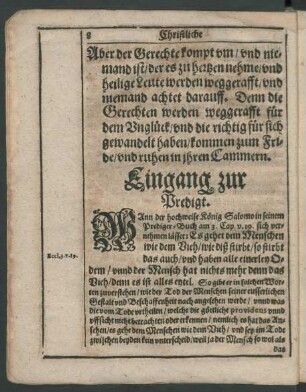 8 Christliche
Aber der Gerechte kompt vm/ vnd nie-
mand ist/ der es zu hertzen nehme/ vnd
heilige Leute werden weggerafft/ vnd
niemand achtet darauff. Denn die
Gerechten werden weggerafft für
dem Vnglück/ vnd die richtig für sich
gewandelt haben/ kommen zum Fri-
de/ vnd ruhen in jhren Cammern.
Eingang zur
Predigt.
WAnn der hochweise König Salomo in seinem
Prediger-Buch am 3. Cap. v. 19. sich ver-
nehmen lässet: Es gehet dem Menschen
wie dem Vieh/ wie diß stirbt/ so stirbt
das auch/ vnd haben alle einerley O-
Eccles.3.v.19.
dem/ vnnd der Mensch hat nichts mehr denn das
Vieh/ denn es ist alles eytel. So gibt er in solchen Wor-
ten zuverstehen/ wie der Tod der Menschen seiner eusserlichen
Gestalt vnd Beschaffenheit nach angesehen werde/ vnnd was
die vom Tode vrtheilen/ welche die göttliche providentz vnnd
auffsicht nicht betrachten oder erkennen/ nemlich es hat das An-
sehen/ es gehe dem Menschen wie dem Vieh/ vnd sey im Tode
zwischen beyden kein vnterscheid/ weil ja der Mensch so wol als
das